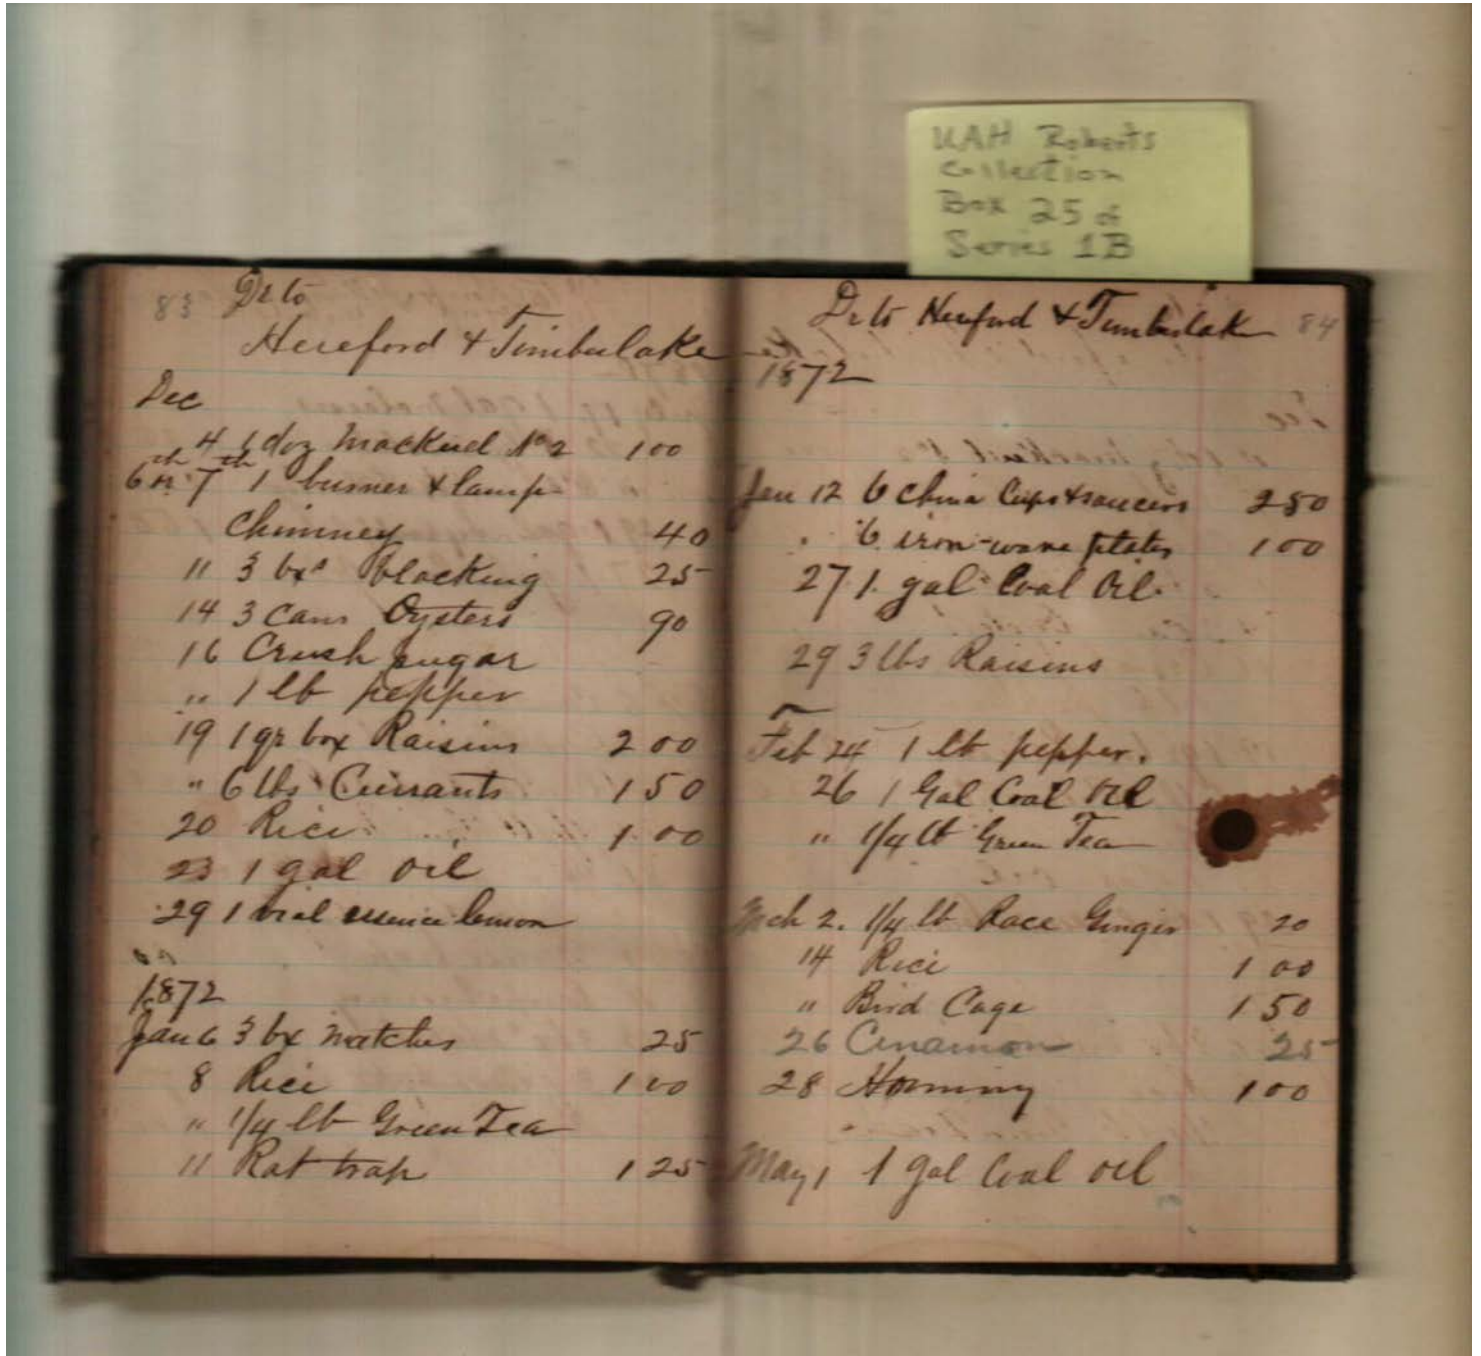 UAH Roberts
Collection
Box 25 of
Series 1B
83 Dr to
Hereford & Timberlake
Dec
4 1 doz Mackerel No 2 100
6th or 7th 1 burner & lamp
Chimney 40
11 3 bxs blacking 25
14 3 cans Oysters 90
16 Crush sugar
" 1 lb pepper
19 1 qr box Raisins 2 00
" 6 lbs Currants 1 50
20 Rice 1 00
23 1 gal oil
29 1 vial essence lemon
1872
Jan 6 3 bx matches 25
8 Rice 1 00
" 1/4 lb Green Tea
11 Rat trap 1 25
Dr to Hereford & Timberlak 84
1872
Jan 12 6 China Cups & saucers 2 50
" 6 iron-ware plates 1 00
27 1 gal Coal Oil
29 3 lbs Raisins
Feb 24 1 lb pepper.
26 1 Gal Coal Oil
" 1/4 lb Green Tea
Mch 2. 1/4 lb Race Ginger 20
14 Rice 1 00
" Bird Cage 1 50
26 Cinamon 25
28 Hominy 1 00
May 1 1 gal Coal oil